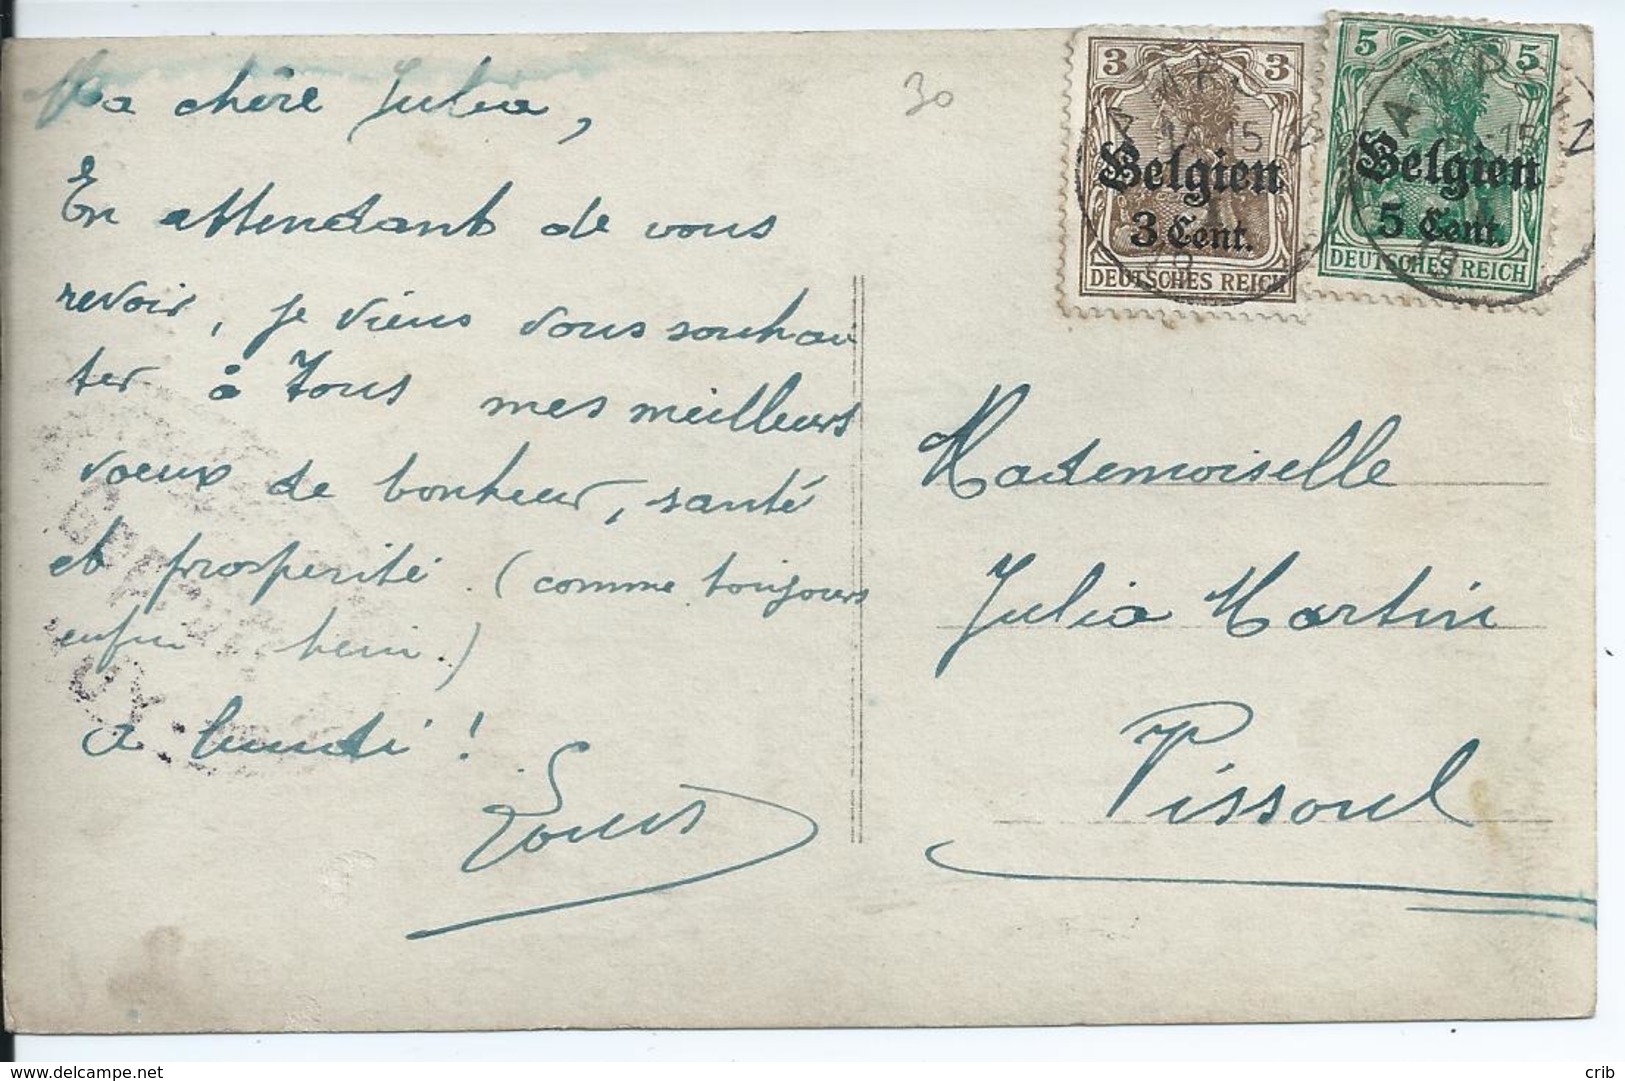 Ma chère Julia,
30
En attendant de vous
revoir, je viens vous souhai
ter à tous mes meilleurs
voeux de bonheur, santé
et prosperité. (comme toujours
enfin hein.)
a lundi !
Louis
3 3
Belgien
3 Cent.
DEUTSCHES REICH
5 5
Belgien
5 Cent.
DEUTSCHES REICH
Mademoiselle
Julia Martin
Pissoul
HUY
crib